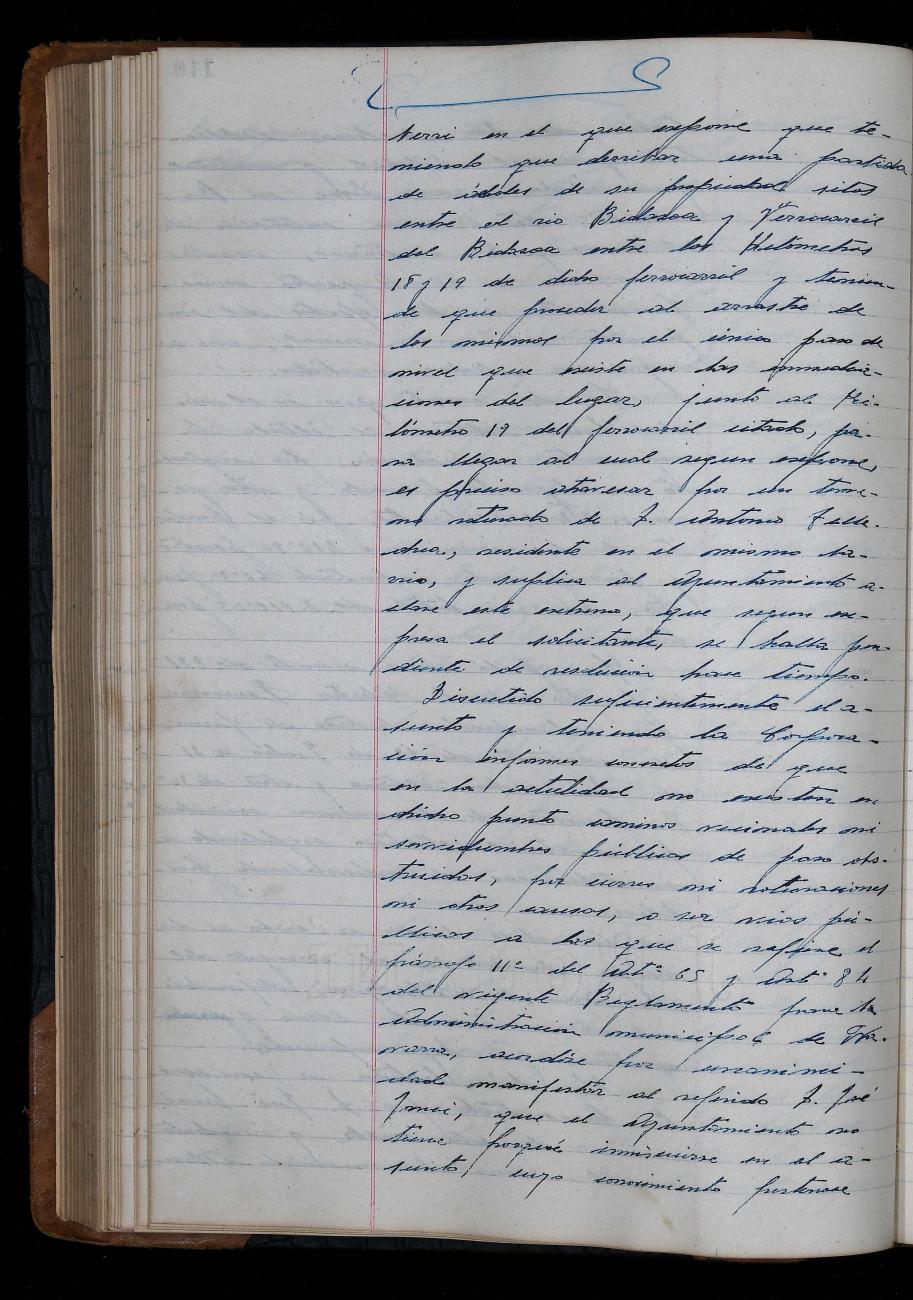 Nerri en el que expone que te-
niendo que derribar una partida
de árboles de su propiedad sitos
entre el rio Bidasoa y Ferrocarril
del Bidasoa entre los Kilómetros
18 y 19 de dicho ferrocarril y tenien-
do que proceder al arrastre de
los mismos por el único paso de
nivel que existe en las inmedia-
ciones del lugar, junto al Ki-
lómetro 19 del ferrocarril citado, pa-
ra llegar al cual segun expone,
es preciso atravesar por un terre-
no roturado de D. Antonio
residente en el mismo ba-
rrio, y suplica al Ayuntamiento a-
clare este extremo, que segun ex-
presa el solicitante, se halla pen-
diente de resolución hace tiempo.
Discutido suficientemente el a-
sunto y teniendo la Corpora-
ción informes concretos de que
en la actulidad no existen en
dicho punto caminos vecinales ni
servidumbres públicas de paso obs-
truidos, por cierres ni roturaciones
ni otras causas, o ser vias pú-
blicas a las que se refiere el
párrafo 11º del Artº 65 y Artº 84
del vigente Reglamento para la
Administración municipal de Na-
varra, acordóse por unanimi-
dad manifestar al referido D. José
que el Ayuntamiento no
tiene porqué inmiscuirse en el a-
sunto, cuyo conocimiento pertenece